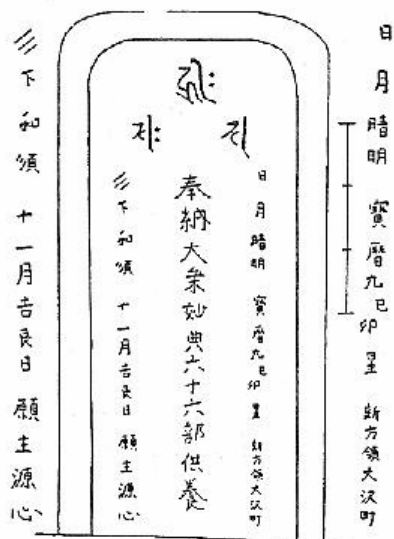 日月晴明 寶暦九巳卯星 新方領大沢町
日月晴明 寶暦九巳卯星 新方領大沢町
奉納大乗妙典六十六部供養
下和須 十一月吉良日 願主源心
下和須 十一月吉良日 願主源心